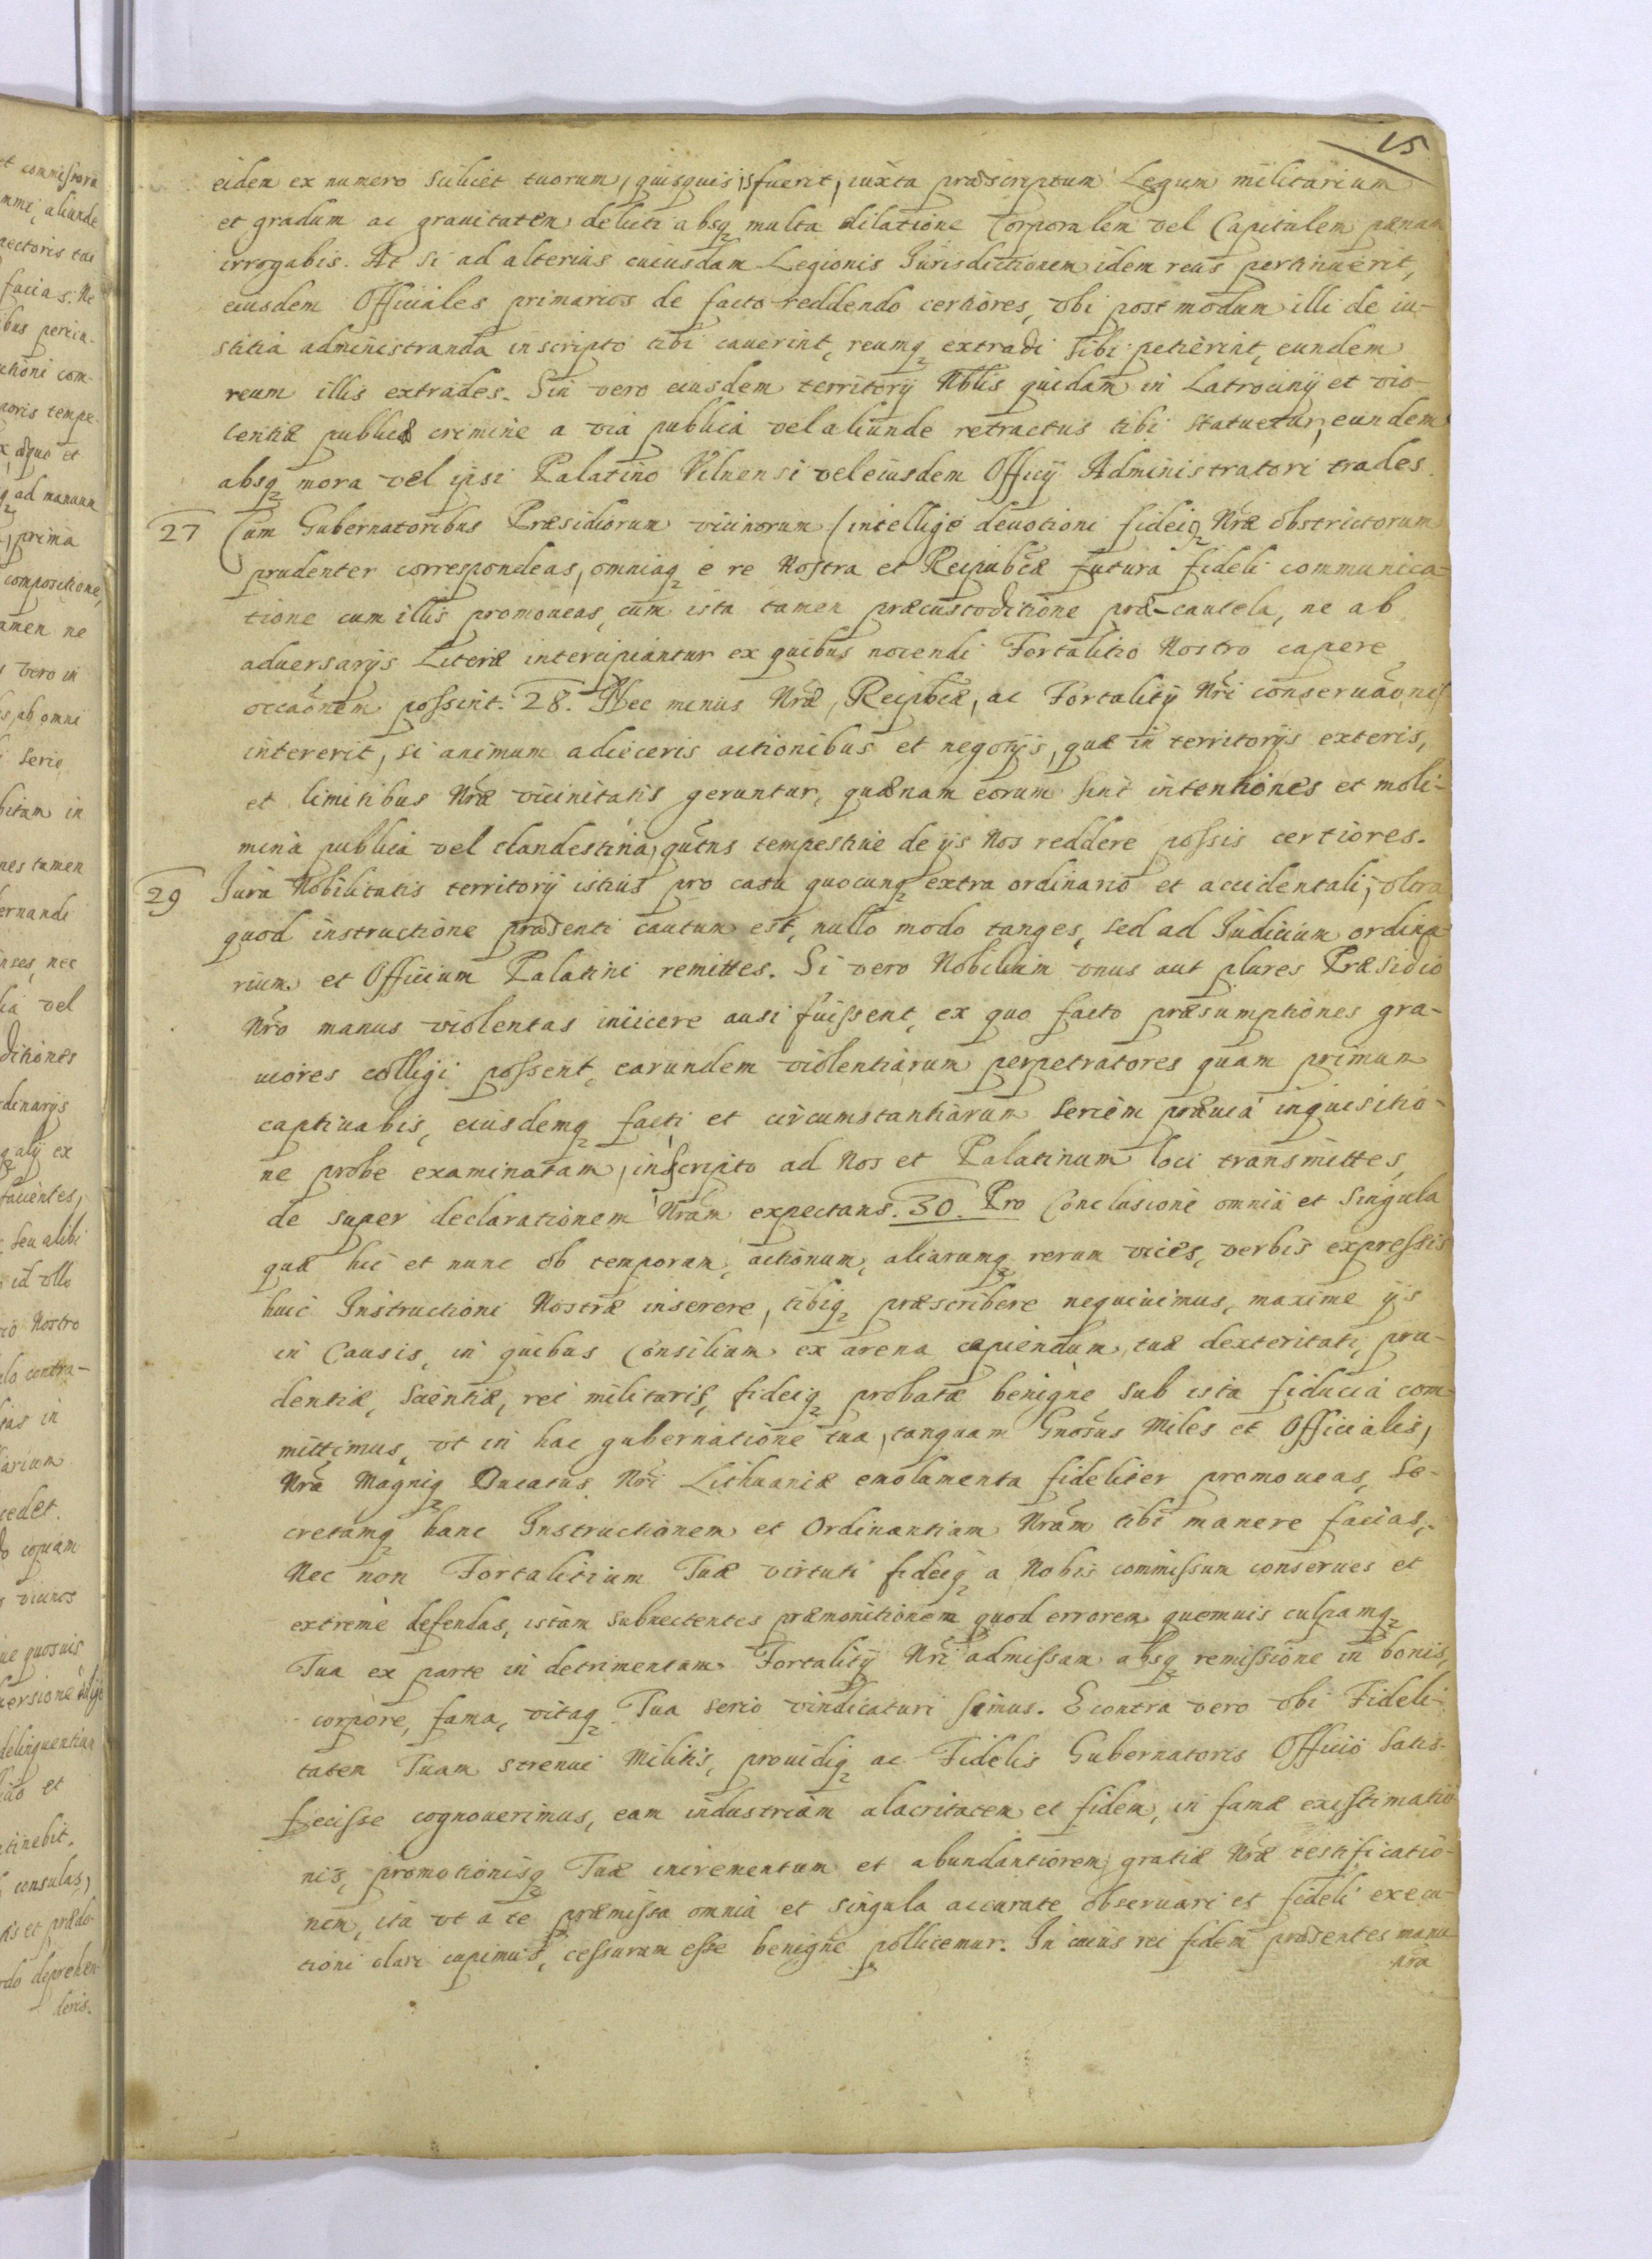 15
eidem ex numero scilicet tuorum, quisquis is fuerit, iuxta præscriptum Legum militarium
et gradum ac grauitatem delicti absq multa dilatione Corporalem vel Capitalem pænam
irrogabis. At si ad alterius cuiusdam Legionis Jurisdictionem idem reus pertinuerit,
eiusdem Officiales primarios de facto reddendo certiores, vbi postmodum illi de iu-
stitia administranda in scripto tibi cauerint, reumq extradi sibi petierint, eundem
reum illis extrades. Sin vero eiusdem territorij Nblis quidam in Latrocinij et vio-
lentiæ publicæ crimine a via publica vel aliunde retractus tibi statuetur, eundem
absq mora vel ipsi Palatino Vilnensi vel eiusdem Officij Administratori trades.
27 Cum Gubernatoribus Præsidiorum vicinorum (intellige deuotioni fideiq Nræ obstrictorum
prudenter correspondeas, omniaq e re Nostra et Reipubcæ futura fideli communica-
tione cum illis promoueas, cum ista tamen præcustoditione præ-cautela, ne ab
aduersarijs Literæ intercipiantur ex quibus nocendi Fortalitio Nostro capere
occaonem possint. 28. Nec minus Nræ, Reipbcæ, ac Fortalitij Nri conseruaonis
intererit, si animum adieceris actionibus et negotijs, quæ in territorijs exteris,
et limitibus Nræ vicinitatis geruntur, quænam eorum sint intentiones et moli-
mina publica vel clandestina, qutns tempestiue de ijs Nos reddere possis certiores.
29 Jura Nobilitatis territorij istius pro casu quocunq extra ordinario et accidentali, vltra
quod instructione præsenti cautum est, nullo modo tanges, sed ad Judicium ordina
rium et Officium Palatini remittes. Si vero Nobilium vnus aut plures Præsidio
Nro manus violentas iniicere ausi fuissent, ex quo facto præsumptiones gra-
uiores colligi possent, earundem violentiarum perpetratores quam primum
captiuabis, eiusdemq facti et circumstantiarum seriem præuia inquisitio-
ne probe examinatam, in scripto ad Nos et Palatinum loci transmittes,
de super declarationem Nram expectans. 30. Pro Conclusione omnia et singula
quæ hic et nunc ob temporum, actionum, aliarumq rerum vices, verbis expressis
huic Instructioni Nostræ inserere, tibiq præscribere nequiuimus, maxime ijs
in Causis, in quibus Consilium ex arena capiendum, tuæ dexteritati, pru-
dentiæ, scientiæ, rei militaris, fideiq probatæ benigne sub ista fiducia com-
mittimus, vt in hac gubernatione tua, tanquam Gnosus Miles et Officialis,
Nra Magniq Ducatus Nri Lithuaniæ emolumenta fideliter promoueas, Se-
cretamq hanc Instructionem et Ordinantiam Nram tibi manere facias,
Nec non Fortalitium Tuæ virtuti fideiq a Nobis commissum conserues et
extreme defendas, istam subnectentes præmonitionem quod errorem quemuis culpamq
Tua ex parte in detrimentum Fortalitij Nri admissam absq remissione in bonis,
corpore, fama, vitaq Tua serio vindicaturi simus. E contra vero vbi Fideli-
tatem Tuam strenui Militis, prouidiq ac Fidelis Gubernatoris Officio Satis-
fecisse cognouerimus, eam industriam alacritatem et fidem, in famæ existimatio-
nis, promotionisq Tuæ incrementum et abundantiorem gratiæ Nræ testificatio-
nem, ita vt a te præmissa omnia et singula accurate obseruari et fideli execu-
tioni dari cupimus, cessuram esse benigne pollicemur. In cuius rei fidem præsentes manu
nra